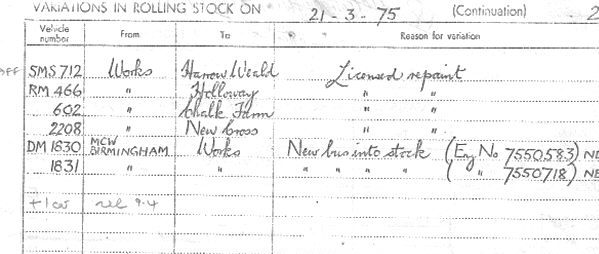 VARIATIONS IN ROLLING STOCK ON 21-3-75 (Continuation) 2
Vehicle number From To Reason for variation
OFF SMS 712 Works Harrow Weald Licensed repaint
RM 466 " Holloway " "
602 " Chalk Farm " "
2208 " New Cross " "
DM 1830 MCW BIRMINGHAM Works New bus into stock (Eng No 7550583) NE
1831 " " " " " " ( " 7550718) NE
rel 9.4